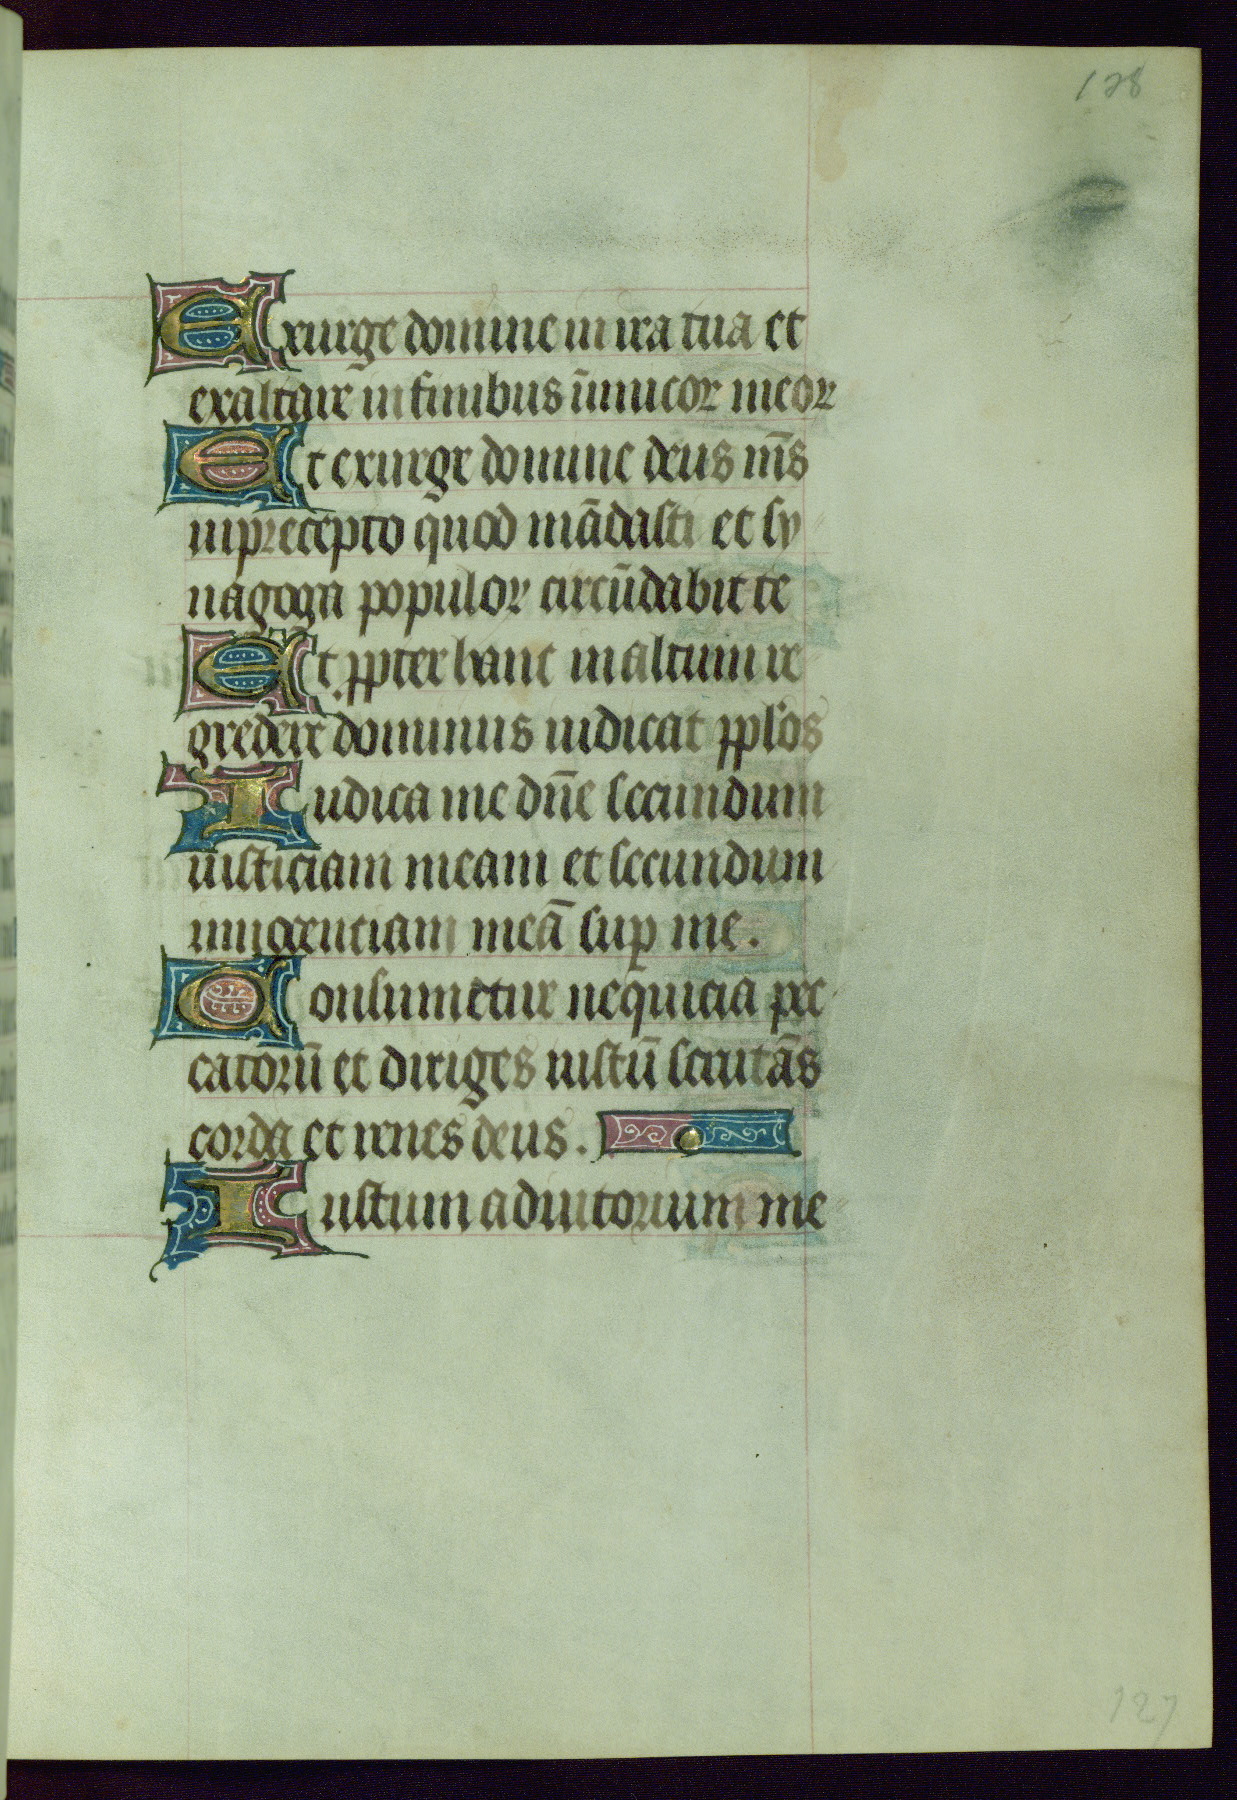 128
Exurge domine in ira tua et
exaltare in finibus inimicoꝝ meoꝝ
Et exurge domine deus m̄s
in precepto quod mādasti et sy
nagoga populoꝝ circūdabit te
Et ꝓpter hanc in altum re
gredere dominus iudicat ppl'os
Iudica me dn̄e secundum
iusticiam meam et secundum
innocentiam meā suꝑ me.
Consumetur nequicia pec
catorū et diriges iustū scrutās
corda et renes deus.
Iustum adiutorium me
127